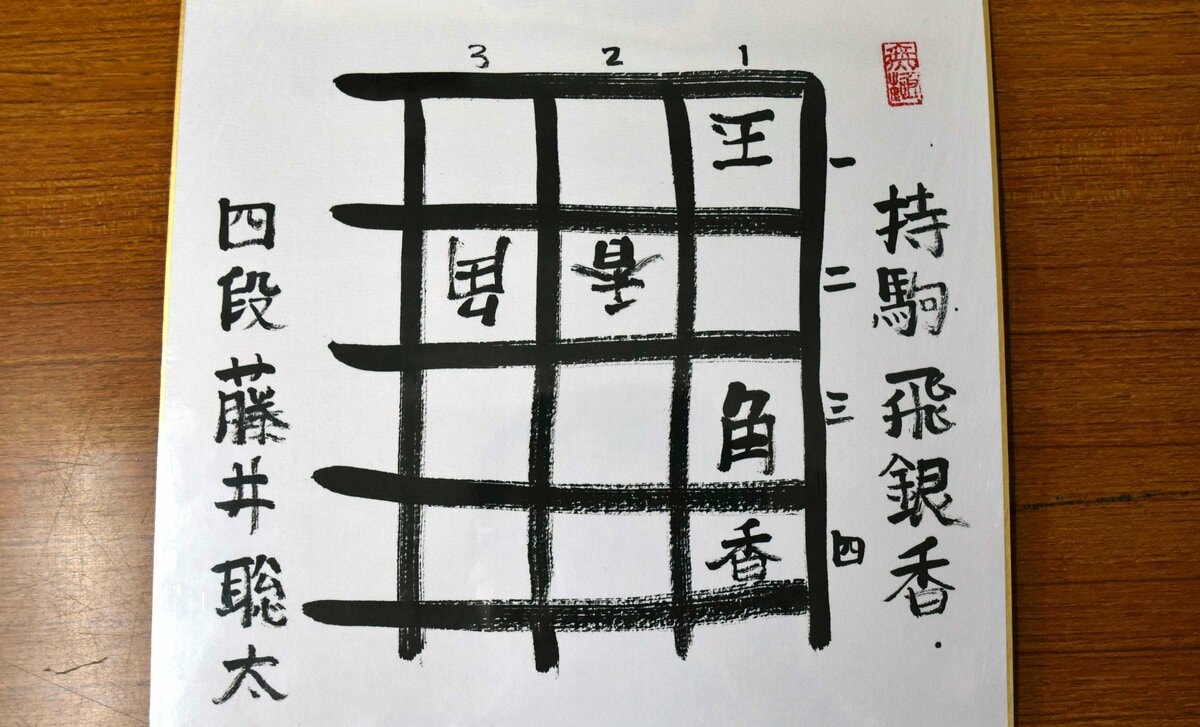 3 2 1
王 一
角 香 二
角 三
香 四
持駒 飛銀香.
四段 藤井聡太